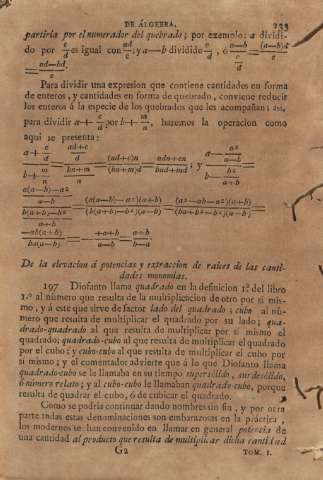 DE ÁLGEBRA.
partirla por el numerador del quebrado; por exemplo: a dividi-
do por c/d es igual con ad/c; y a—b dividido c/d, ó (a—b)/(c/d) = (a—b)d/c
= (ad—bd)/c.
Para dividir una expresion que contiene cantidades en forma
de enteros, y cantidades en forma de quebrado, conviene reducir
los enteros á la especie de los quebrados que les acompañan; así,
para dividir a+ c/d por b+ m/n, haremos la operacion como
aqui se presenta:
(a+ c/d)/(b+ m/n) = ((ad+c)/d)/((bn+m)/n) = (ad+c)n/(bn+m)d = (adn+cn)/(bnd+md); y
De la elevacion á potencias y extraccion de raices de las canti-
dades monomias.
197 Diofanto llama quadrado en la definicion 1.ª del libro
1.º al número que resulta de la multiplicacion de otro por sí mis-
mo, y á este que sirve de factor lado del quadrado; cubo al nú-
mero que resulta de multiplicar el quadrado por su lado; qua-
drado-quadrado al que resulta de multiplicar por sí mismo el
quadrado; quadrado-cubo al que resulta de multiplicar el quadrado
por el cubo; y cubo-cubo al que resulta de multiplicar el cubo por
sí mismo; y el comentador advierte que á lo que Diofanto llama
quadrado-cubo se le llamaba en su tiempo supersólido, sursólido,
ó número relato; y al cubo-cubo le llamaban quadrado-cubo, porque
resulta de quadrar el cubo, ó de cubicar el quadrado.
Como se podria continuar dando nombres sin fin, y por otra
parte todas estas denominaciones son embarazosas en la práctica,
los modernos se han convenido en llamar en general potencia de
una cantidad al producto que resulta de multiplicar dicha cantidad
G2 TOM. I.